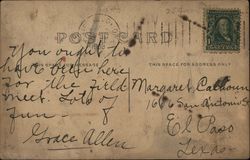 POST CARD
THIS SPACE FOR ADDRESS ONLY
You ought to
have been here
for the field
meet. Lots of
fun.
Grace Allen
Margaret Calhoun
San Antonio St
El Paso
Texas